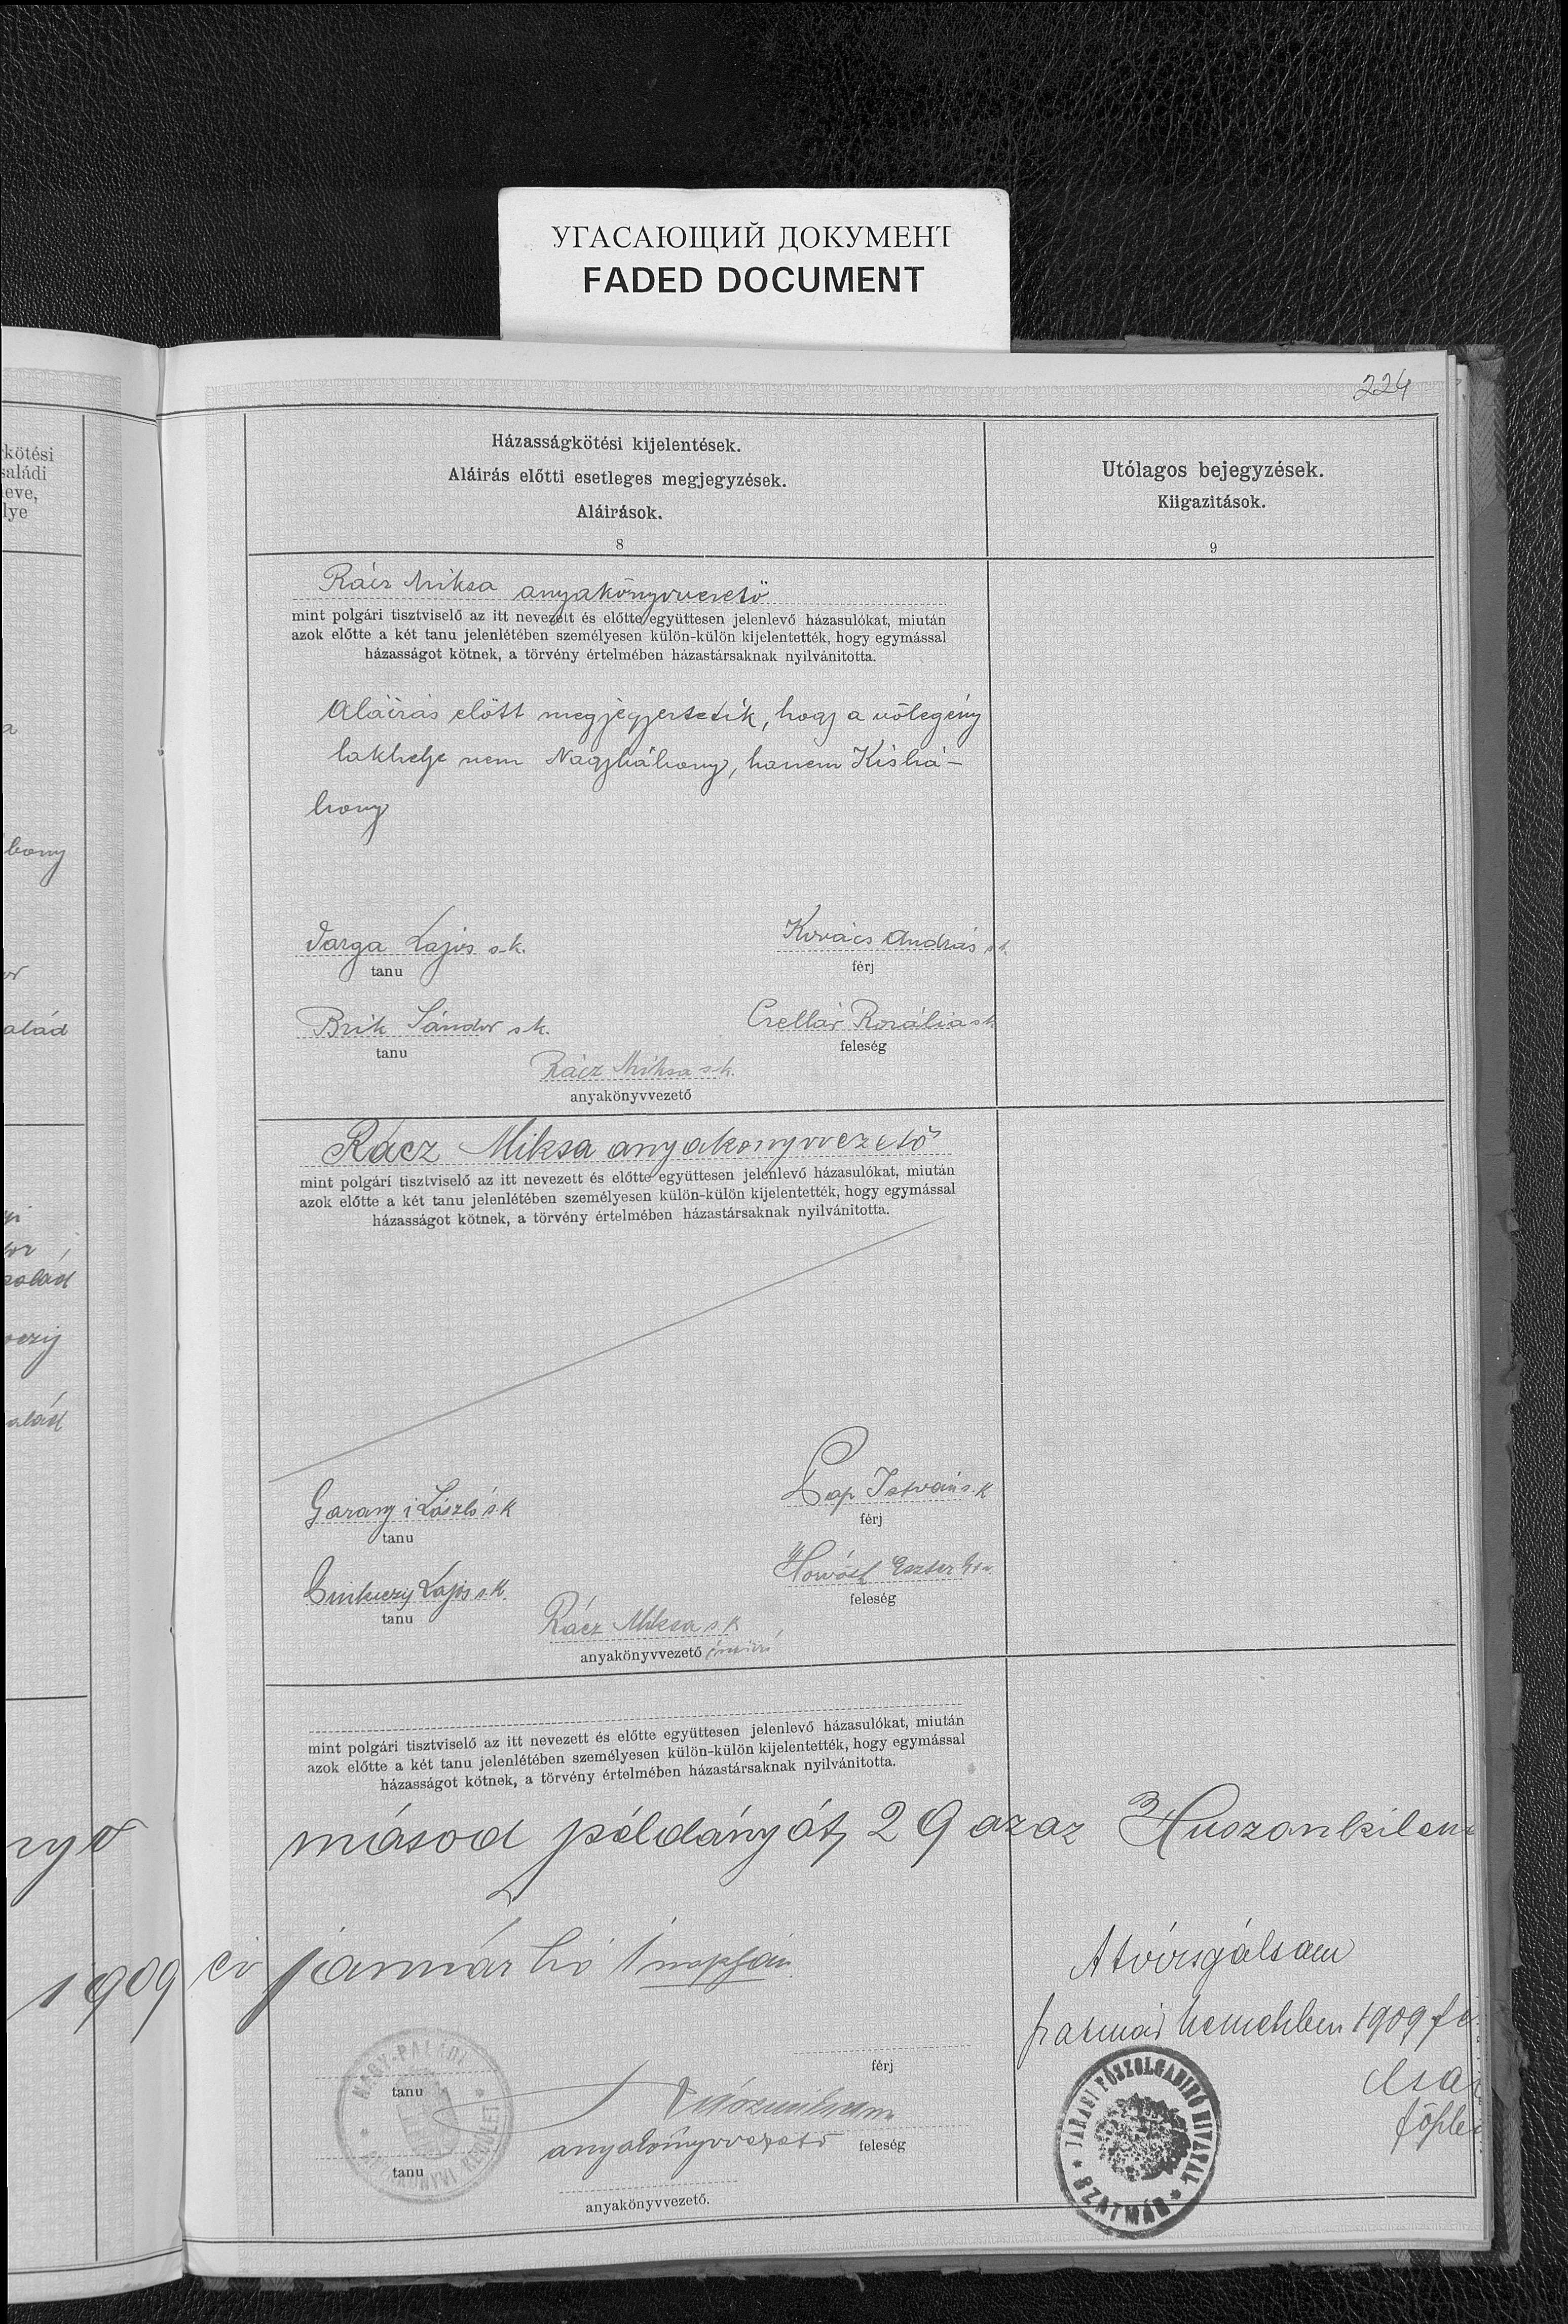 УГАСАЮЩИЙ ДОКУМЕНТ
FADED DOCUMENT
224
kötési
saládi
eve,
lye
Házasságkötési kijelentések.
Aláirás előtti esetleges megjegyzések.
Aláirások.
8
Utólagos bejegyzések.
Kiigazitások.
9
Rácz Miksa anyakönyvvezető
mint polgári tisztviselő az itt nevezett és előtte együttesen jelenlevő házasulókat, miután
azok előtte a két tanu jelenlétében személyesen külön-külön kijelentették, hogy egymással
házasságot kötnek, a törvény értelmében házastársaknak nyilvánitotta.
Aláirás előtt megjegyeztetik, hogy a vőlegény
lakhelye nem Nagyhábony, hanem Kishá-
bony
bony
Varga Lajos s.k.
Kovács András s.k.
tanu
férj
alád
Brik Sándor s.k.
Czellár Rozália s.k.
tanu
feleség
Rácz Miksa s.k.
anyakönyvvezető
Rácz Miksa anyakönyvvezető
mint polgári tisztviselő az itt nevezett és előtte együttesen jelenlevő házasulókat, miután
azok előtte a két tanu jelenlétében személyesen külön-külön kijelentették, hogy egymással
házasságot kötnek, a törvény értelmében házastársaknak nyilvánitotta.
salád
alád
Garanyi László s.k
Pap István s.k
tanu
férj
Lajos s.k.
Horváth Eszter
tanu
feleség
Rácz Miksa s.k
anyakönyvvezető
mint polgári tisztviselő az itt nevezett és előtte együttesen jelenlevő házasulókat, miután
azok előtte a két tanu jelenlétében személyesen külön-külön kijelentették, hogy egymással
házasságot kötnek, a törvény értelmében házastársaknak nyilvánitotta.
másod példányát, 29 azaz Huszonkilen
1909 év január hó 1 napján
Átvizsgáltam
Szatmár Németiben 1909 fe
férj
tanu
anyakönyvvezető
feleség
tanu
anyakönyvvezető.
NAGY-PALÁDI
ANYAKÖNYVI KERÜLET
JÁRÁSI FŐSZOLGABIRÓ HIVATAL
SZATMÁR